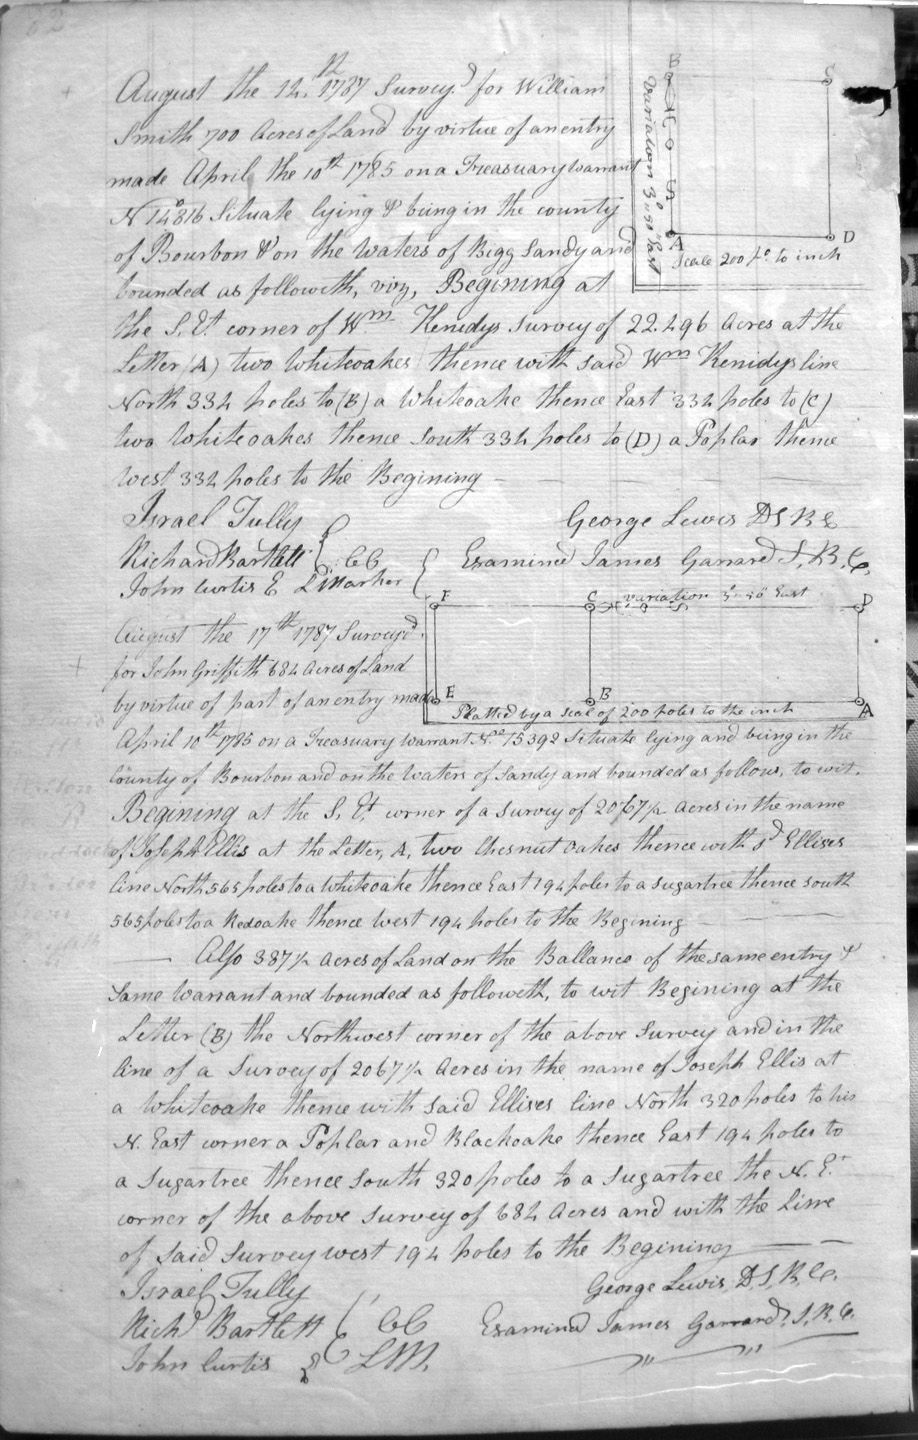 August the 12th 1787 Surveyd for William
Smith 700 Acres of Land by virtue of an entry
made April the 10th 1785 on a Treasuary warrant
No 14816 Situate lying & being in the county
of Bourbon & on the Waters of Bigg Sandy and
bounded as followith, viz, Begining at
the S. Et corner of Wm Kenidys Survey of 22.496 Acres at the
Letter (A) two Whiteoakes thence with said Wm Kenidys line
North 334 poles to (B) a Whiteoake thence East 334 poles to (C)
two Whiteoakes thence South 334 poles to (D) a Poplar thence
West 334 poles to the Begining
B
C
A
D
variation 3° 50" East
Scale 200 po. to inch
Israel Tully
Richard Bartlett CC
John Curtis E LMarker
George Lewis DSBC
Examined James Garrard S.B.C.
August the 17th 1787 Surveyd
for John Griffith 684 Acres of Land
by virtue of part of an entry made
F
C
variation 3° 50" East
D
E
B
A
Platted by a Scal of 200 poles to the inch
April 10th 1785 on a Treasuary Warrant No 15392 Situate lying and being in the
County of Bourbon and on the Waters of Sandy and bounded as follows, to wit.
Begining at the S, Et corner of a Survey of 2067½ Acres in the name
of Joseph Ellis at the Letter, A, two Chesnut Oakes thence with sd Ellises
line North 565 poles to a Whiteoake thence East 194 poles to a Sugartree thence South
565 poles to a Redoake thence West 194 poles to the Begining
Also 387½ Acres of Land on the Ballance of the same entry &
Same Warrant and bounded as followith, to wit Begining at the
Letter (B) the Northwest corner of the above Survey and in the
line of a Survey of 2067½ Acres in the name of Joseph Ellis at
a Whiteoake thence with said Ellises line North 320 poles to his
N. East corner a Poplar and Blackoake thence East 194 poles to
a Sugartree thence South 320 poles to a Sugartree the N. Et
corner of the above Survey of 684 Acres and with the Line
of said Survey West 194 poles to the Begining
Israel Tully
Richd Bartlett CC
John Curtis LM.
George Lewis, D.S.B.C.
Examined James Garrard, S.B.C.